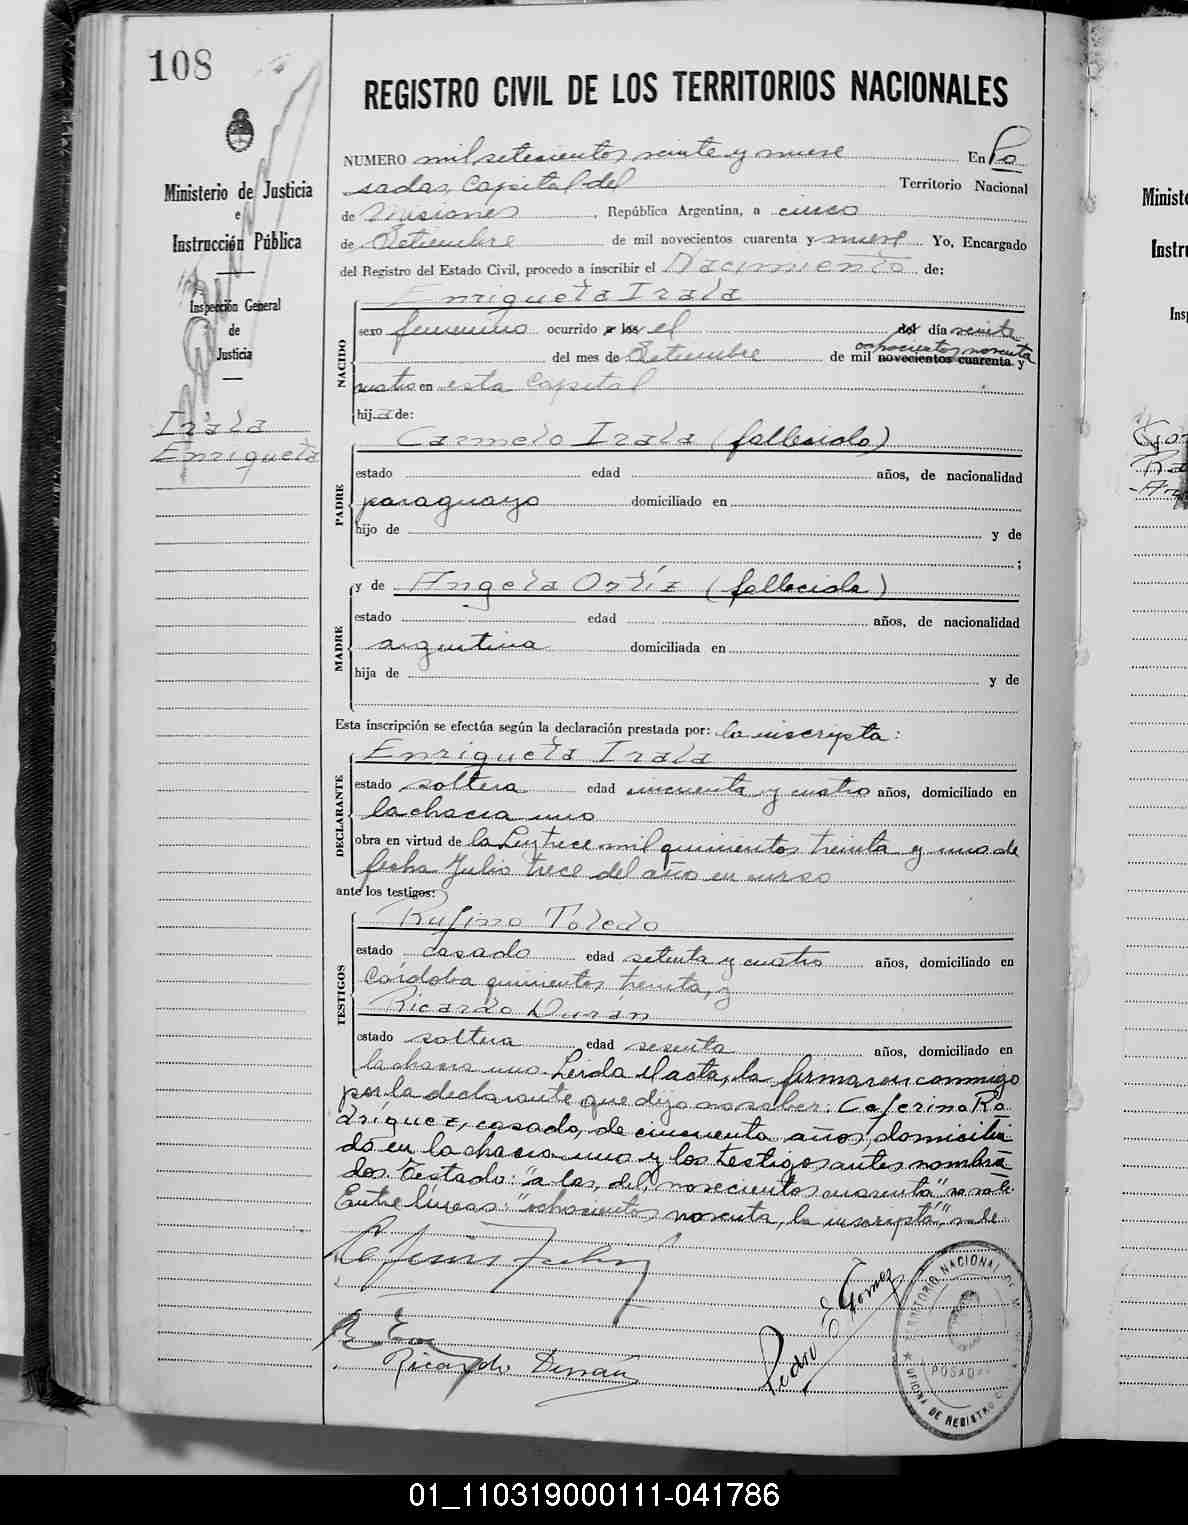 108
REGISTRO CIVIL DE LOS TERRITORIOS NACIONALES
Ministerio de Justicia
e
Instrucción Pública
Inspección General
de
Justicia
Irala
Enriqueta
NUMERO mil setecientos veinte y nueve En Po
sadas, Capital del Territorio Nacional
de Misiones, República Argentina, a cinco
de Setiembre de mil novecientos cuarenta y nueve Yo, Encargado
del Registro del Estado Civil, procedo a inscribir el Nacimiento de:
NACIDO
Enriqueta Irala
sexo femenino ocurrido a las el del día veinte
ochocientos noventa
del mes de Setiembre de mil novecientos cuarenta y
cuatro en esta Capital
hija de:
PADRE
Carmelo Irala (fallecido)
estado edad años, de nacionalidad
paraguayo domiciliado en
hijo de y de
;
MADRE
y de Angela Ortíz (fallecida)
estado edad años, de nacionalidad
argentina domiciliada en
hija de y de
Esta inscripción se efectúa según la declaración prestada por: la inscripta:
DECLARANTE
Enriqueta Irala
estado soltera edad cincuenta y cuatro años, domiciliado en
la chacra uno
obra en virtud de la Ley trece mil quinientos treinta y uno de
fecha Julio trece del año en curso
ante los testigos:
TESTIGOS
Rufino Toledo
estado casado edad setenta y cuatro años, domiciliado en
Córdoba quinientos treinta, y
Ricardo Durán
estado soltero edad sesenta años, domiciliado en
la chacra uno. Leida el acta, la firmaron conmigo
por la declarante que dijo no saber: Ceferino Ro
dríguez, casado, de cincuenta años, domicilia
do en la chacra uno y los testigos antes nombra
dos. Testado: "a las, del, novecientos cuarenta" no vale.
Entre líneas: "ochocientos noventa, la inscripta", vale
Ricardo Durán
Pedro E Gomez
TERRITORIO NACIONAL DE
POSADAS
OFICINA DE REGISTRO
Ministe
Instru
Insp
01_110319000111-041786